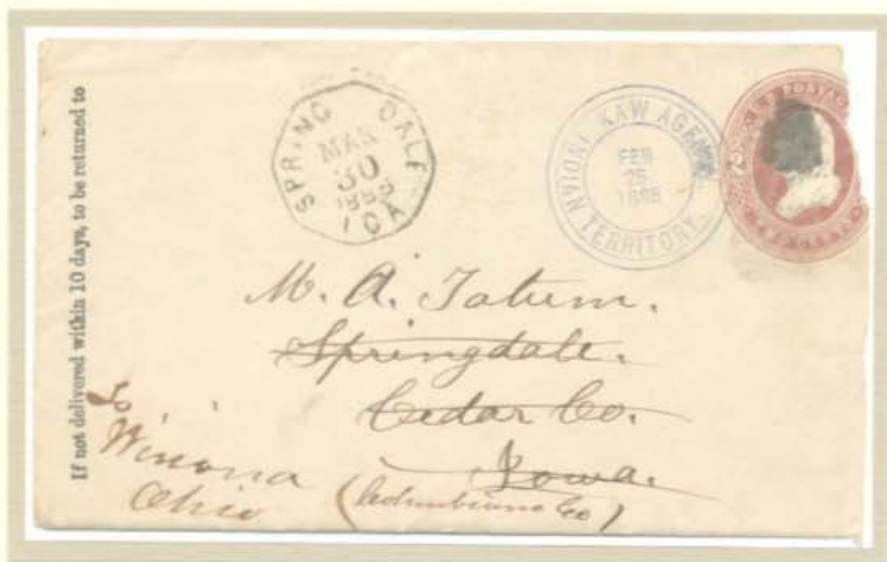 If not delivered within 10 days, to be returned to
SPRING DALE
MAR
30
IOA
KAW AGENCY
FEB
25
INDIAN TERRITORY.
U.S. POSTAGE
M. A. Tatum.
Springdale.
Cedar Co.
Iowa.
to
Winona
Ohio (Columbiana Co)